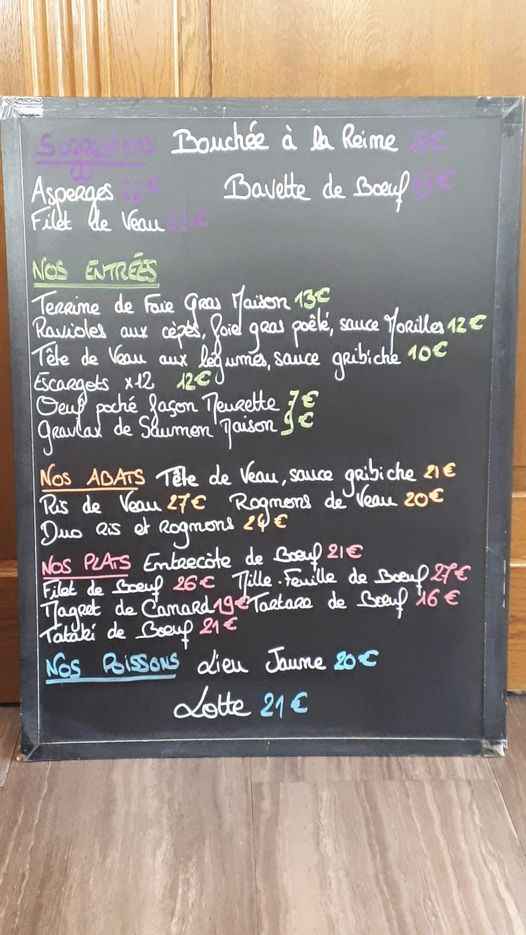 Suggestions Bouchée à la Reine
Asperges Bavette de Boeuf
Filet de Veau
NOS ENTRÉES
Terrine de Foie Gras Maison 13€
Ravioles aux cèpes, foie gras poêlé, sauce Morilles 12€
Tête de Veau aux légumes, sauce gribiche 10€
Escargots x12 12€
Oeuf poché façon Meurette 7€
Gravlax de Saumon Maison 9€
NOS ABATS Tête de Veau, sauce gribiche 21€
Ris de Veau 27€ Rognons de Veau 20€
Duo Ris et Rognons 24€
NOS PLATS Entrecôte de Boeuf 21€
Filet de Boeuf 26€ Mille-Feuille de Boeuf 27€
Magret de Canard 19€ Tartare de Boeuf 16€
Tataki de Boeuf 21€
NOS POISSONS Lieu Jaune 20€
Lotte 21€